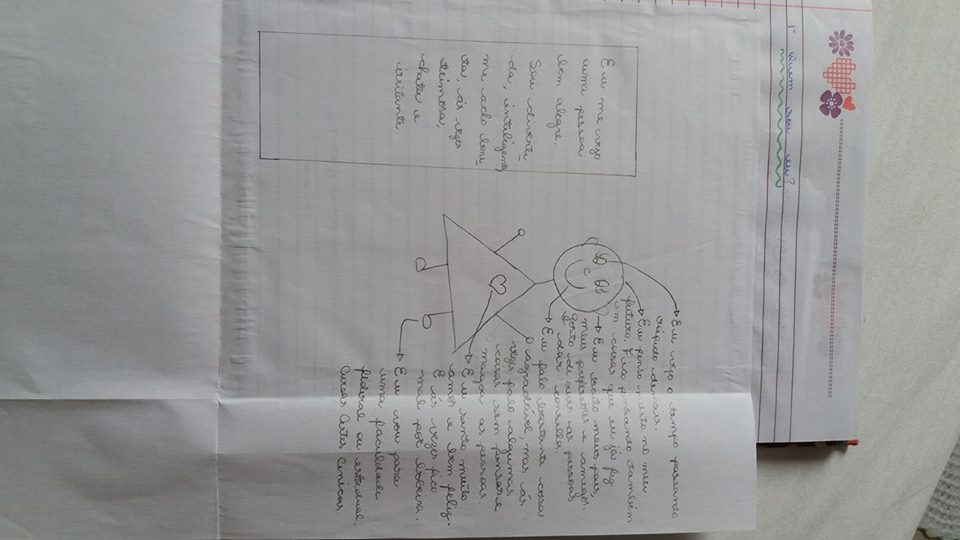 1º Quem sou eu?
Eu me vejo
uma pessoa
bem alegre.
Sou diverti
da, inteligente,
me acho boni
ta, às vezes
teimosa,
chata e
irritante
→ Eu vejo o tempo passando
rápido demais.
→ Eu penso muito no meu
futuro. Fico pensando também
em coisas que eu já fiz
→ Eu escuto meus pais,
meus professores e amigos.
gosto de ouvir as pessoas
dar conselho.
→ Eu falo bastante coisas
agradável, mas às
vezes falo algumas
coisas sem pensar e
magoa as pessoas
→ Eu sinto muito
amor e bem feliz.
E às vezes fico
mal por bobeira.
→ Eu vou para
uma faculdade
federal ou estadual,
Cursar Artes Cênicas.